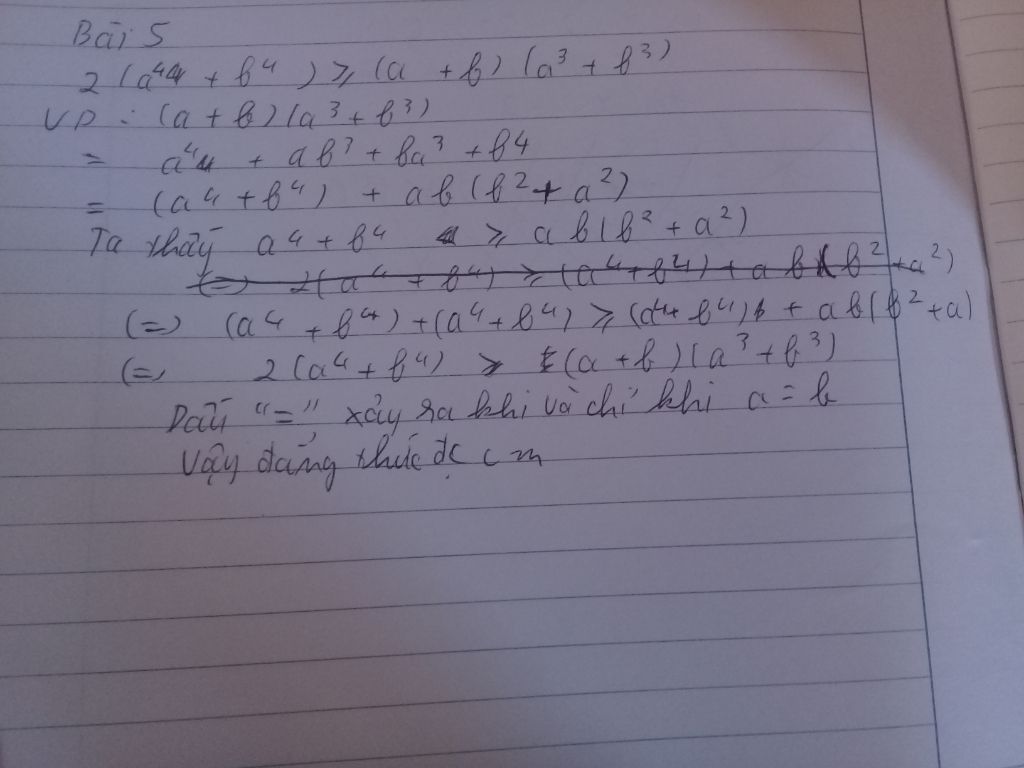 Bài 5
2 (a⁴ + b⁴) ≥ (a + b) (a³ + b³)
VP : (a + b) (a³ + b³)
= a⁴ + ab³ + ba³ + b4
= (a⁴ + b⁴) + ab (b² + a²)
Ta thấy a⁴ + b⁴ ≥ ab (b² + a²)
(=) 2(a⁴ + b⁴) ≥ (a⁴ + b⁴) + ab (b² + a²)
(=) (a⁴ + b⁴) + (a⁴ + b⁴) ≥ (a⁴ + b⁴) + ab (b² + a)
(=) 2 (a⁴ + b⁴) ≥ (a + b) (a³ + b³)
Dấu "=" xảy ra khi và chỉ khi a = b
Vậy đẳng thức đc c m